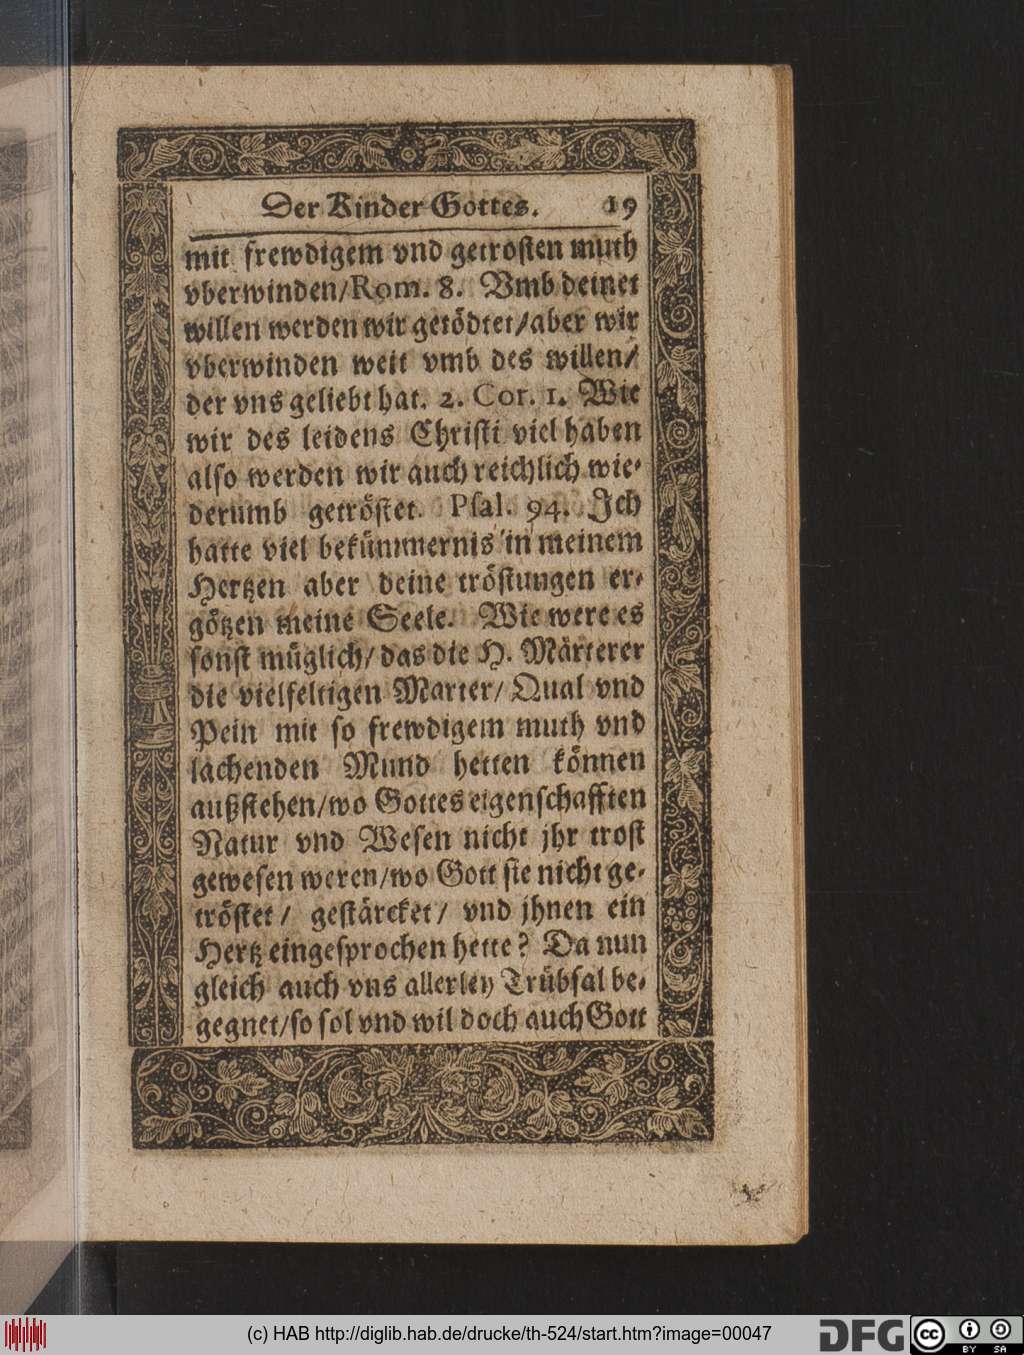 Der Kinder Gottes. 19
mit frewdigem vnd getrosten muth
vberwinden/Rom. 8. Vmb deinet
willen werden wir getödtet/aber wir
vberwinden weit vmb des willen/
der vns geliebt hat. 2. Cor. 1. Wie
wir des leidens Christi viel haben
also werden wir auch reichlich wie-
derumb getröstet. Psal. 94. Jch
hatte viel bekümmernis in meinem
Hertzen aber deine tröstungen er-
götzen meine Seele. Wie were es
sonst müglich/ das die H. Märterer
die vielfeltigen Marter/ Qual vnd
Pein mit so frewdigem muth vnd
lachenden Mund hetten können
außstehen/wo Gottes eigenschafften
Natur vnd Wesen nicht jhr trost
gewesen weren/wo Gott sie nicht ge-
tröstet/ gestärcket/ vnd jhnen ein
Hertz eingesprochen hette? Da nun
gleich auch vns allerley Trübsal be-
gegnet/so sol vnd wil doch auch Gott
(c) HAB http://diglib.hab.de/drucke/th-524/start.htm?image=00047
DFG
cc BY SA